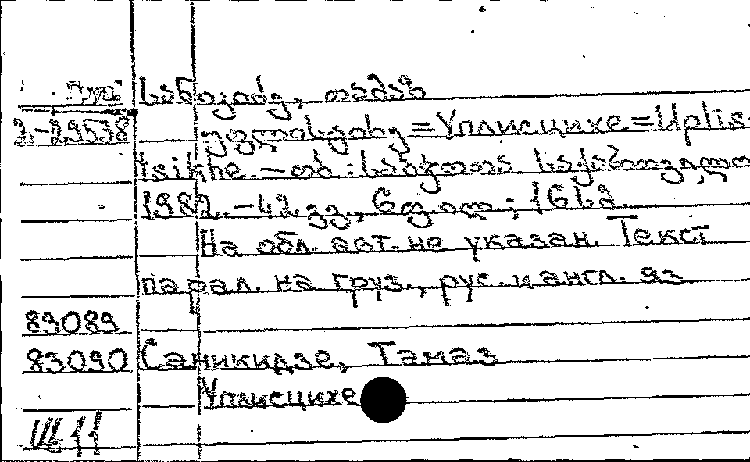 სანიკიძე, თამაზ
2.-29538
უფლისციხე=Уплисцихе=Uplis-
tsikhe.-თბ.:საბჭოთა საქართველო
1982.-42 გვ., 6 ფ.ილ.; 16 სმ
На обл. авт. не указан. Текст
парал. на груз., рус. и англ. яз
89089
89090 Саникидзе, Тамаз
Уплисцихе